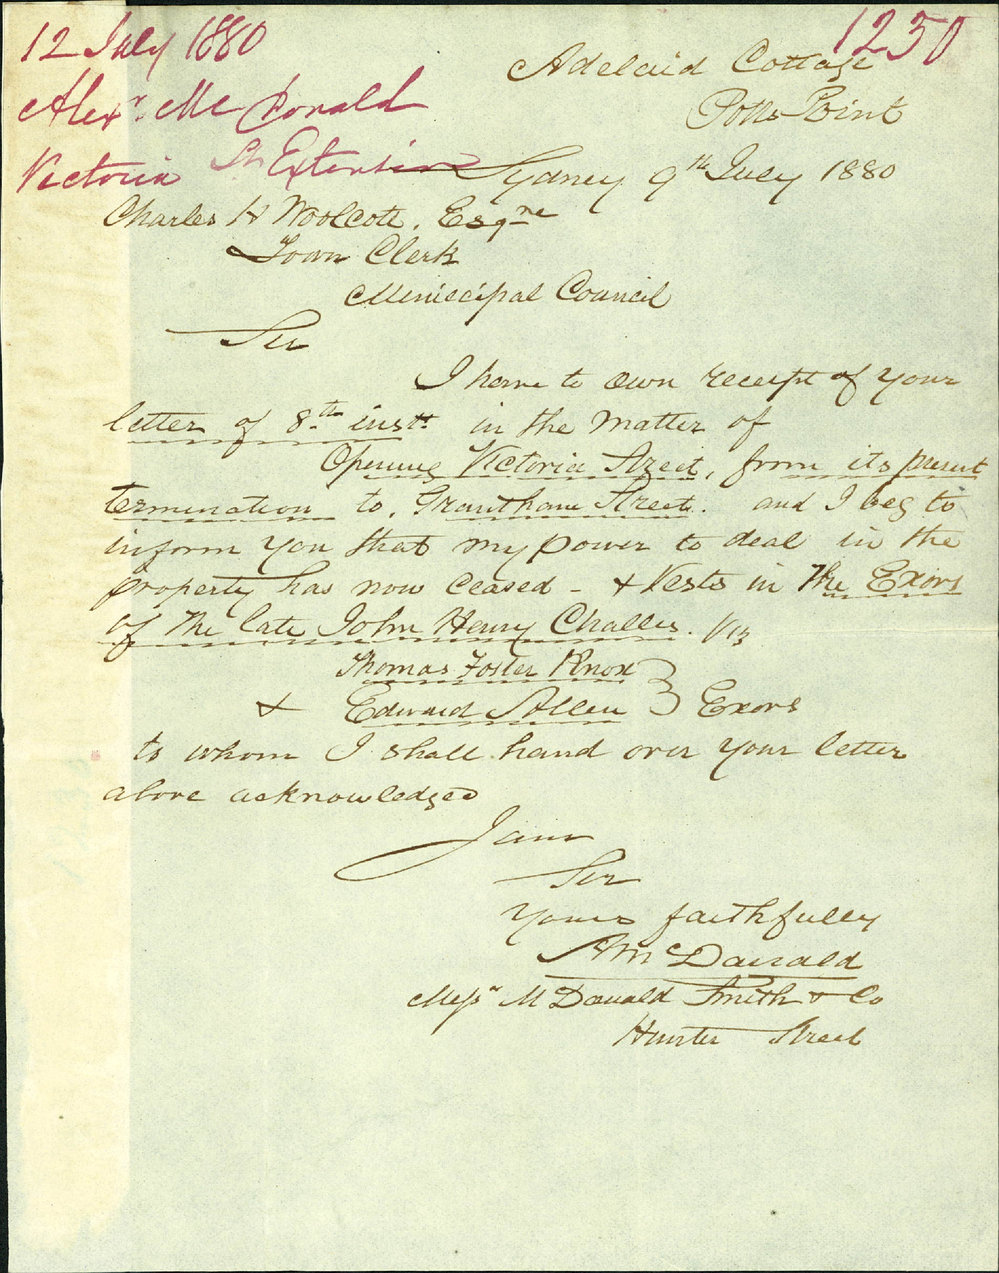 12 July 1880
1250
Alexr. McDonald
Victoria St Extension
Adelaid Cottage
Potts Point
Sydney 9th July 1880
Charles H Woolcott, Esqre
Town Clerk
Municipal Council
Sir
I have to own receipt of your
letter of 8th instt in the matter of
Opening Victoria Street, from its present
termination to, Grantham Street. and I beg to
inform you that my power to deal in the
property has now ceased - & Vests in the Exors
of the late John Henry Challis. Viz
Thomas Foster Knox
& Edward S Allen } Exors
to whom I shall hand over your letter
above acknowledged
I am
Sir
Yours faithfully
A McDonald
Messrs McDonald Smith & Co
Hunter Street